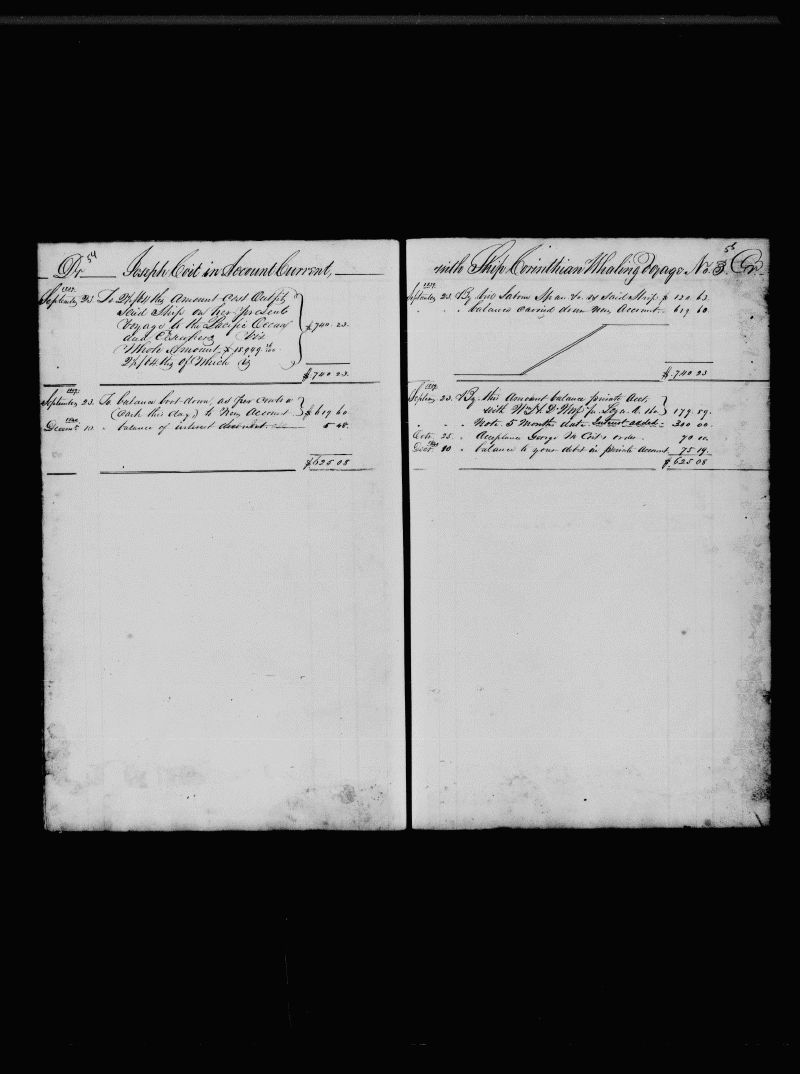 Dr 54 Joseph Coit in Account Current,
September 23. To 2½/64ths Amount Cost Outfits
Said Ship on her present
Voyage to the Pacific Ocean
and Elsewhere Viz
Whole Amount $18949
2½/64ths of Which is
$740 23
$740 23
September 23. To balance bro't down, as per Contra
(Cash this day) to New Account $619 60
Decemr 10. " balance of interest 5 48
$625 08
with Ship Corinthian Whaling Voyage No. 3. Cr.
September 23. By
balance carried down New Account 619 60
$740 23
23. By this Amount balance private Acct.
with Wm H. D. 179 89
" Note 5 Months date 300 00
Octo. 25. " Acceptance George M Coit's order 70 00
10 " balance to your debit in private Account 75 19
$625 08